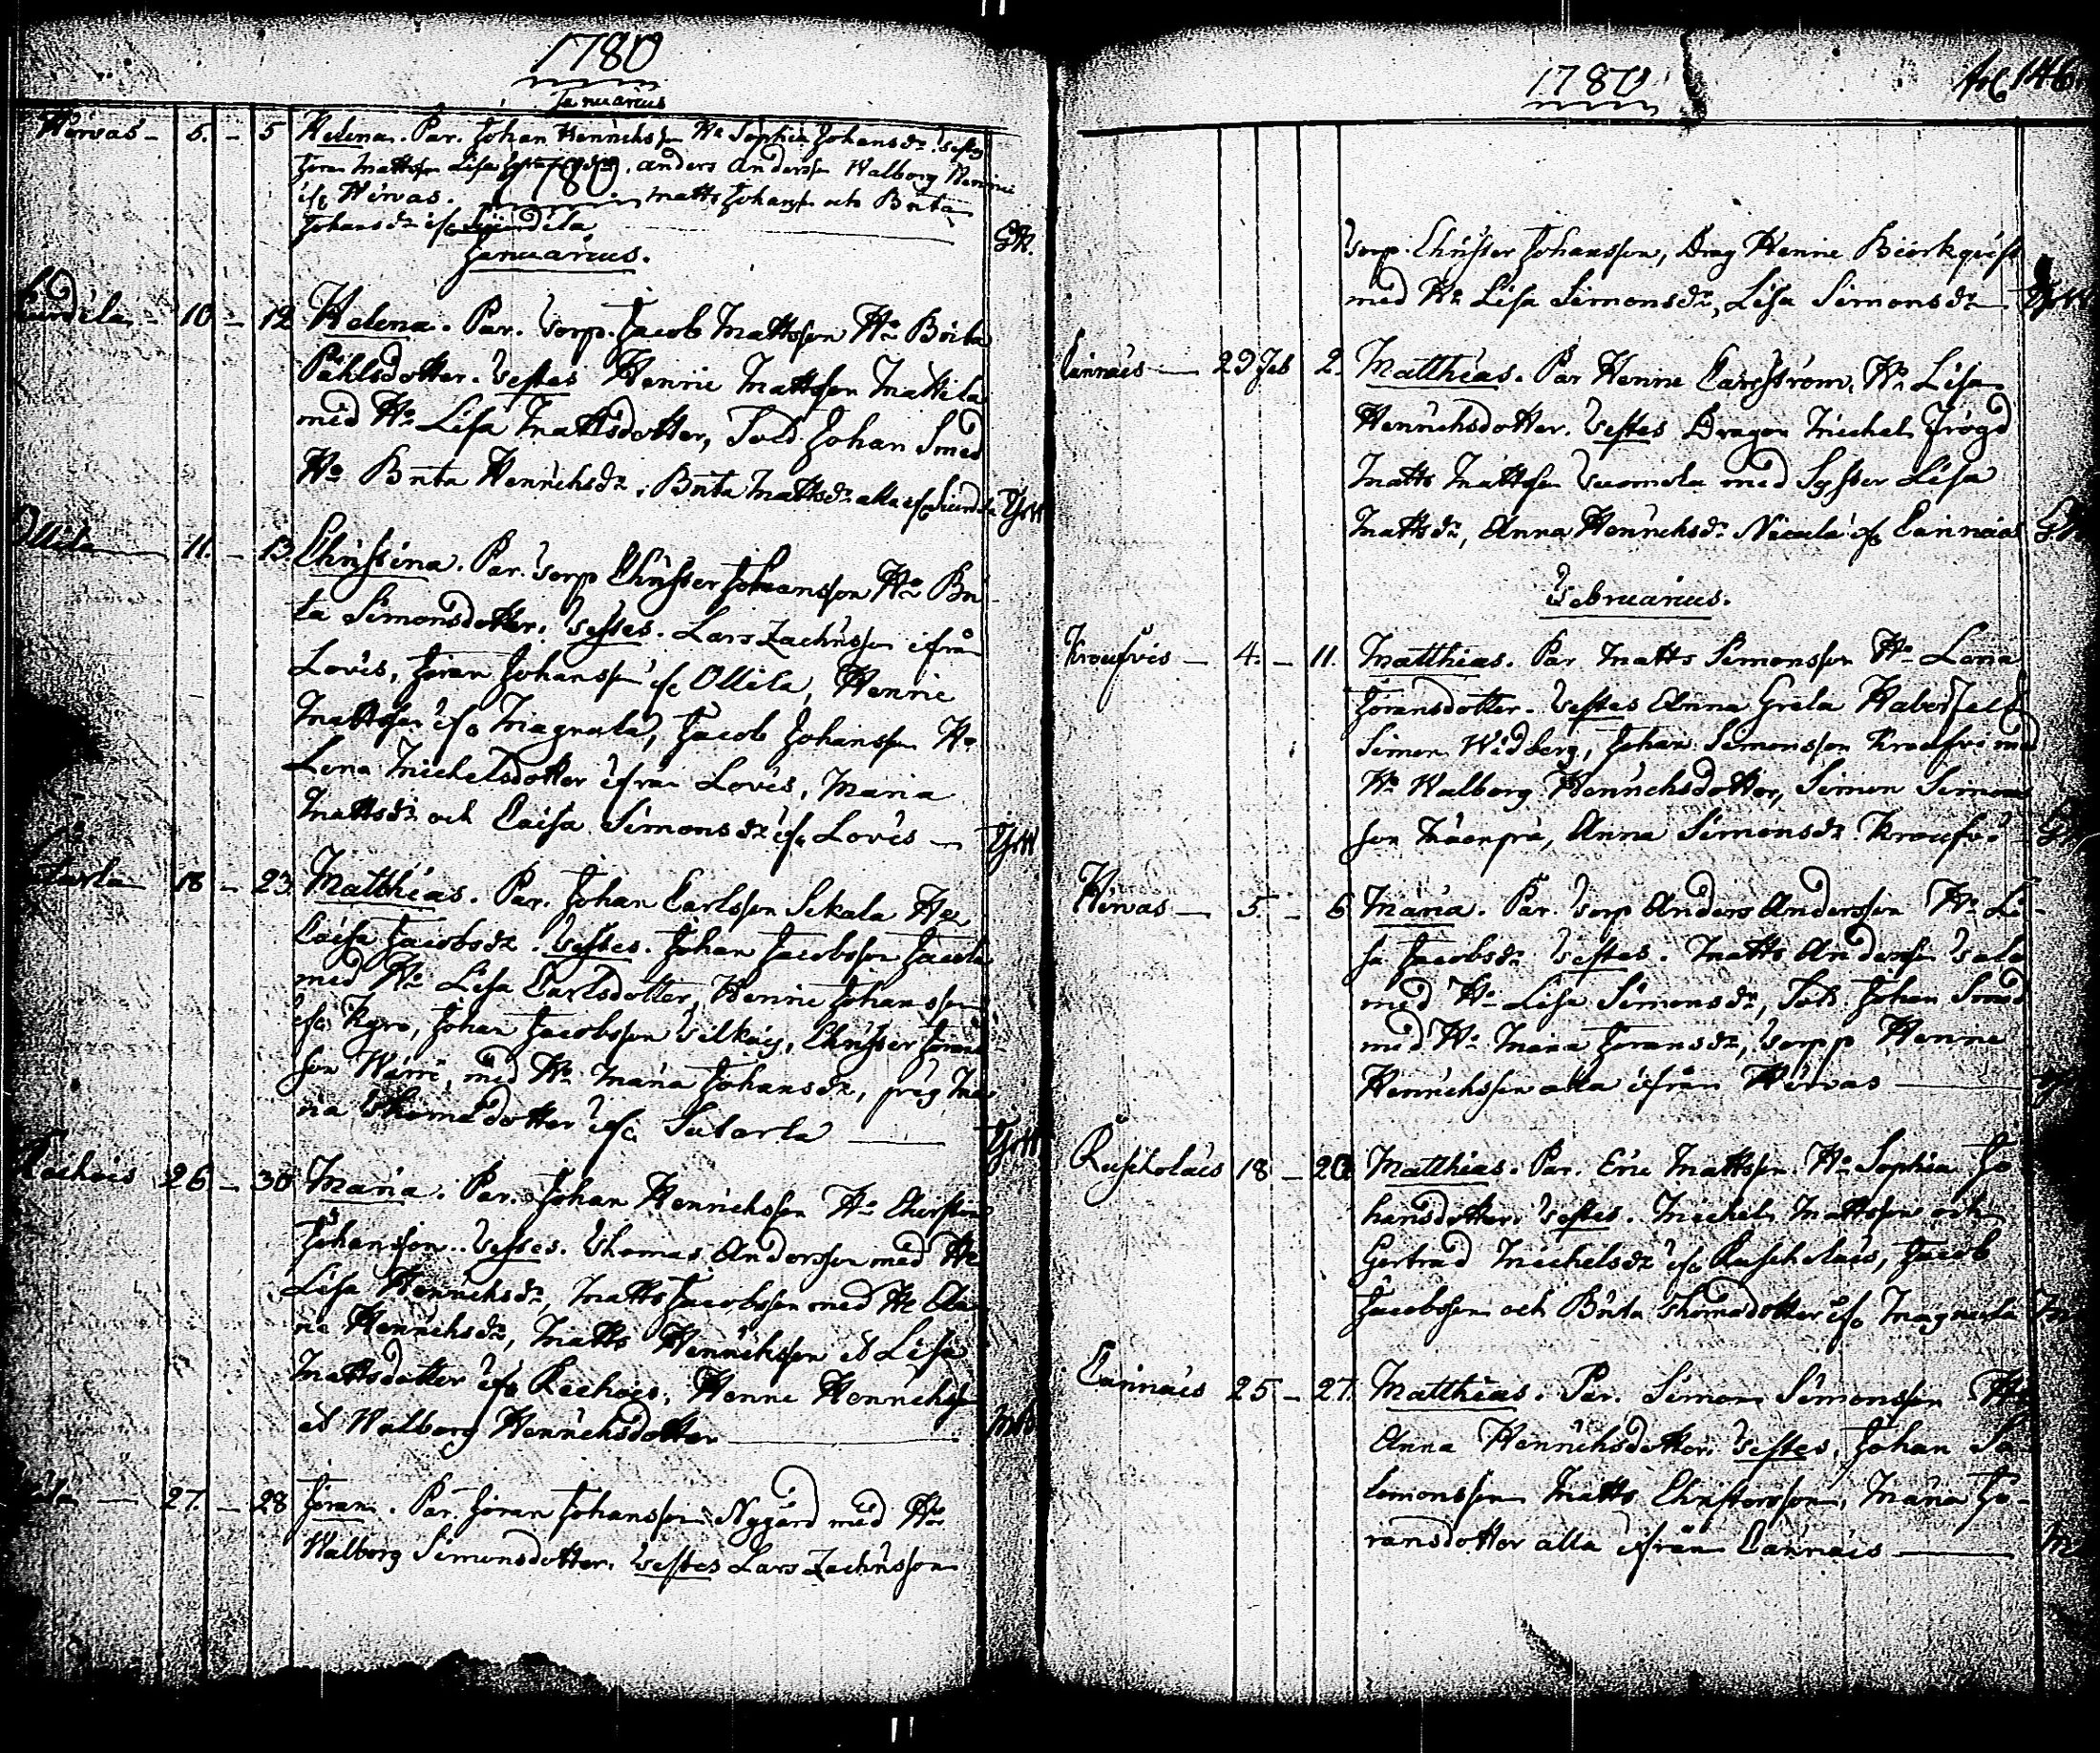 1780
Januarius
Hirvas - 5. - 5 Helena. Par. Johan Henrichsson Ho Sophia Johansdr. Testes
Jöran Mattsson Lisa anders Andersson Walborg Henric
ifr. Hirvas. 1780 matts Johansson och Brita
Johansdr ifr.
Januarius. GR.
10 - 12 Helena. Par. Torp. Jacob Mattsson Ho Brita
Påhlsdotter. Testes Henric Mattsson Mattila
med Ho Lisa Mattsdotter, Sold. Johan Smed
Ho Brita Henrichsdr, Brita Mattsdr alla ifr
Ollila 11. - 13. Christina. Par. Torp Christer Johansson Ho Bri
ta Simonsdotter. Testes. Lars Zachrisson ifrån
Lovis, Jöran Johansson ifr Ollila, Henric
Mattsson ifr Magnula, Jacob Johansson Ho
Lena Michelsdotter ifrån Lovis, Maria
Mattsdr och Caisa Simonsdr ifr. Lovis
18 - 23. Matthias. Par. Johan Carlsson Sekala Ho
Caisa Jacobsdr. Testes. Johan Jacobsson Jacola
med Ho Lisa Carlsdotter, Henric Johansson
ifr. Kyro, Johan Jacobsson Silkäy, Christer Jörans
son Wärri, med Ho Maria Johansdr, pig Ma
ria Thomædotter ifr.
26 - 30 Maria. Par. Johan Henrichsson Ho Christin
Johansson. Testes. Thomas Andersson med Ho
Lisa Henrichsdr, Matts Jacobsson med Ho An
na Henrichsdr, Matts Henrichsson et Lisa
Mattsdotter ifr Rechois, Henric Henrichsson
et Walborg Henrichsdotter
27. - 28 Jöran. Par. Jöran Johansson Nygård med Ho
Walborg Simonsdotter. Testes Lars Zachrisson
1780 fol 146
Torp. Christer Johansson, Drag Henric Biörkqvist
med Ho Lisa Simonsdr, Lisa Simonsdr
Cainais - 29 Feb 2. Matthias. Par Henric Carlström, Ho Lisa
Henrichsdotter. Testes Dragon Michel Frögd
Matts Mattsson Suomela med Syster Lisa
Mattsdr, Anna Henrichsdr Nicula ifr Cainais
Februarius.
Kroufvis - 4. - 11. Matthias. Par Matts Simonsson Ho Lena
Jöransdotter. Testes Anna Greta Haberfelt
Simon Widberg, Johan Simonsson Kroufvi med
Ho Walborg Henrichsdotter, Simon Simons
son Mäenpä, Anna Simonsdr Kroufvi
Hirvas - 5. - 6 Maria. Par. Torp Anders Andersson Ho Li-
sa Jacobsdr Testes. Matts Andersson Sala
med Ho Lisa Simonsdr, Sold. Johan Smed
med Ho Maria Jöransdr, Torpp Henric
Henrichsson alla ifrån Hirvas
Ruskolais 18 - 20. Matthias. Par. Eric Mattsson Ho Sophia Jo
hansdotter Testes. Michel Mattsson och
Gertrud Michelsdr ifr Ruskolais, Jacob
Jacobsson och Brita Thomædotter ifr Magnula
Cainais 25 - 27. Matthias. Par. Simon Simonsson Ho
Anna Henrichsdotter. Testes. Johan Sa
lomonsson Matts Christersson, Maria Jö-
ransdotter alla ifrån Cainais